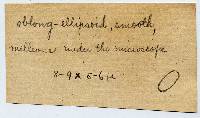 oblong-ellipsoid, smooth,
under the microscope
8-9 x 5-6 µ